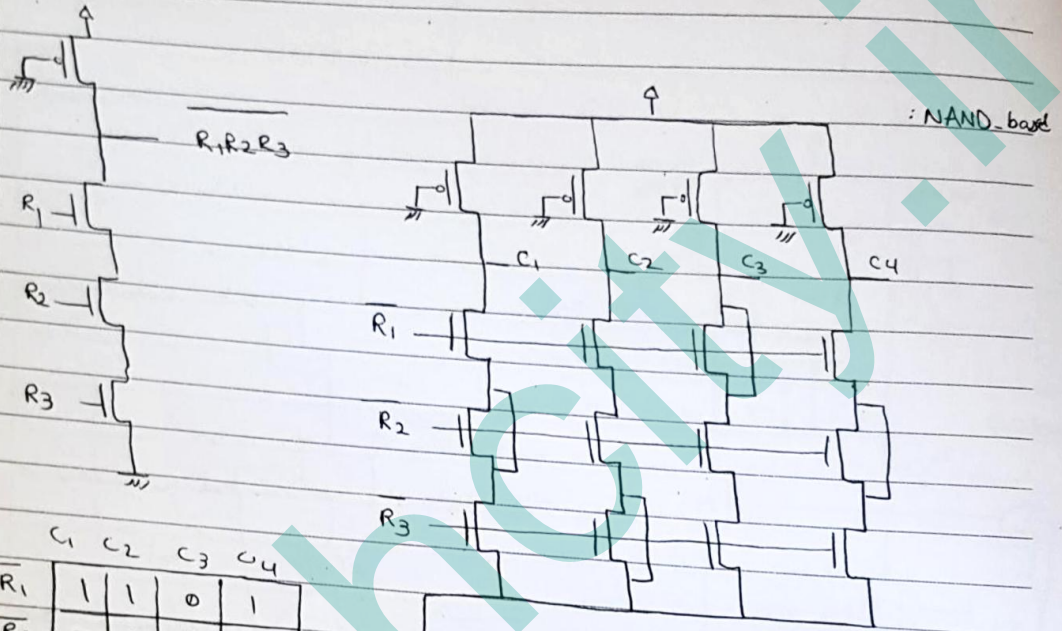 : NAND_based
R1R2R3
R1
R2
R3
C1 C2 C3 C4
R1
R2
R3
C1 C2 C3 C4
R1 1 1 0 1
hcity.i